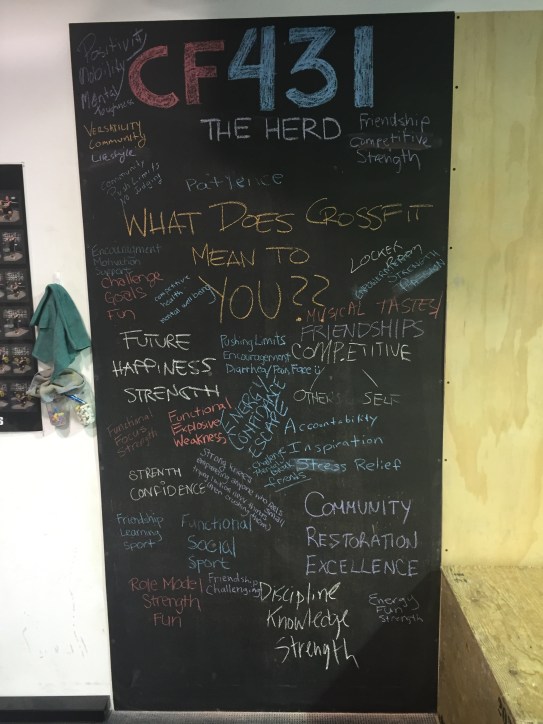 Positivity
Mobility
Mental
Toughness
CF431
THE HERD
VERSABILITY
Community
Lifestyle
Friendship
Competitive
Strength
Community
Push Limits
No Judging
Patience
WHAT DOES CROSSFIT
MEAN TO
YOU??
Encouragement
Motivation
Support
Challenge
Goals
Fun
competitive
health
mental well being
LOCKER
ROOM
EMPOWERMENT
STRENGTH
MUSICAL TASTES/
FRIENDSHIPS
COMPETITIVE
OTHERS SELF
FUTURE
HAPPINESS
STRENGTH
Pushing Limits
Encouragement
Diarrhea/Pain Face
ENERGY/
CONFIDENCE
ESCAPE
Functional
Focus
Strength
Functional
Explosive
Weakness
Accountability
Inspiration
Stress Relief
friends
Strong knees
STRENTH
CONFIDENCE
COMMUNITY
RESTORATION
EXCELLENCE
Friendship
Learning
Sport
Functional
Social
Sport
Role Model
Strength
Fun
Friendship
Challenging
Discipline
Knowledge
Strength
Energy
Fun
Strength